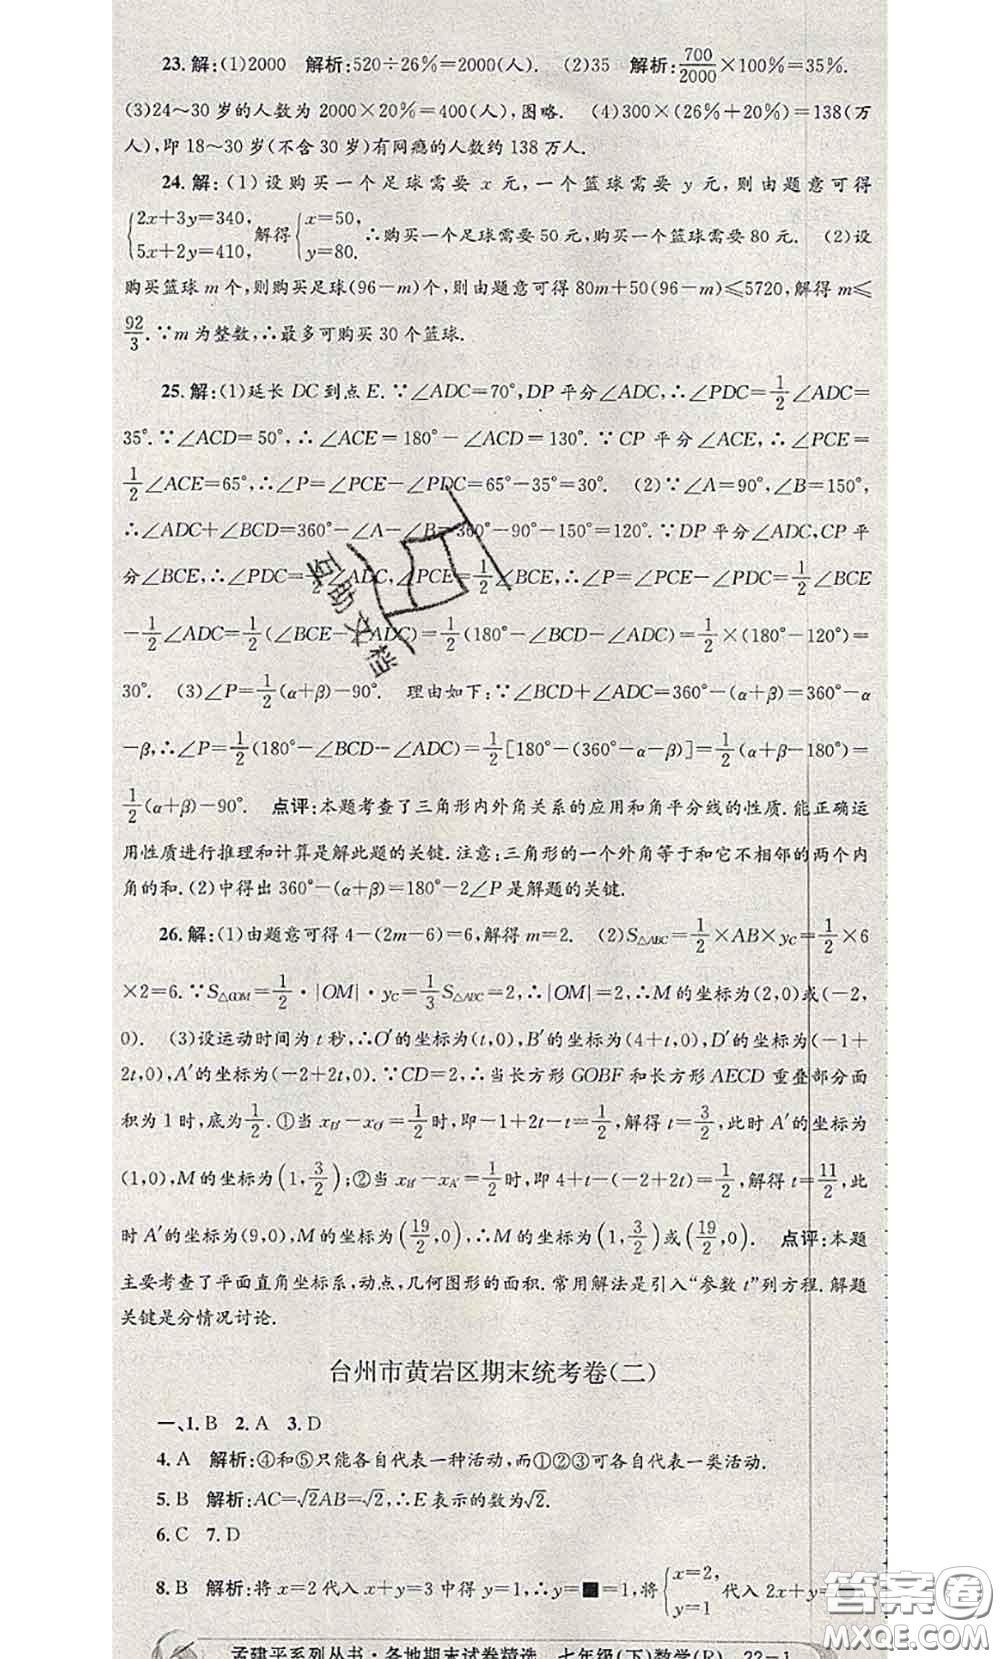 23.解:(1)2000 解析:520÷26%=2000(人). (2)35 解析:700/2000×100%=35%.
(3)24～30岁的人数为2000×20%=400(人),图略. (4)300×(26%+20%)=138(万
人),即18～30岁(不含30岁)有网瘾的人数约138万人.
24.解:(1)设购买一个足球需要x元,一个篮球需要y元,则由题意可得
{2x+3y=340, 5x+2y=410, 解得{x=50, y=80. ∴购买一个足球需要50元,购买一个篮球需要80元. (2)设
购买篮球m个,则购买足球(96-m)个,则由题意可得80m+50(96-m)≤5720,解得m≤
92/3.∵m为整数,∴最多可购买30个篮球.
25.解:(1)延长DC到点E.∵∠ADC=70°,DP平分∠ADC,∴∠PDC=1/2∠ADC=
35°.∵∠ACD=50°,∴∠ACE=180°-∠ACD=130°.∵CP平分∠ACE,∴∠PCE=
1/2∠ACE=65°,∴∠P=∠PCE-∠PDC=65°-35°=30°. (2)∵∠A=90°,∠B=150°,
∴∠ADC+∠BCD=360°-∠A-∠B=360°-90°-150°=120°.∵DP平分∠ADC,CP平
分∠BCE,∴∠PDC=1/2∠ADC,∠PCE=1/2∠BCE,∴∠P=∠PCE-∠PDC=1/2∠BCE
-1/2∠ADC=1/2(∠BCE-∠ADC)=1/2(180°-∠BCD-∠ADC)=1/2×(180°-120°)=
30°. (3)∠P=1/2(α+β)-90°. 理由如下:∵∠BCD+∠ADC=360°-(α+β)=360°-α
-β,∴∠P=1/2(180°-∠BCD-∠ADC)=1/2[180°-(360°-α-β)]=1/2(α+β-180°)=
1/2(α+β)-90°. 点评:本题考查了三角形内外角关系的应用和角平分线的性质.能正确运
用性质进行推理和计算是解此题的关键.注意:三角形的一个外角等于和它不相邻的两个内
角的和.(2)中得出360°-(α+β)=180°-2∠P是解题的关键.
26.解:(1)由题意可得4-(2m-6)=6,解得m=2. (2)S△ABC=1/2×AB×yC=1/2×6
×2=6.∵S△COM=1/2·|OM|·yC=1/3S△ABC=2,∴|OM|=2,∴M的坐标为(2,0)或(-2,
0). (3)设运动时间为t秒,∴O′的坐标为(t,0),B′的坐标为(4+t,0),D′的坐标为(-1+
2t,0),A′的坐标为(-2+2t,0).∵CD=2,∴当长方形GOBF和长方形AECD重叠部分面
积为1时,底为1/2.①当xD′-xO′=1/2时,即-1+2t-t=1/2,解得t=3/2,此时A′的坐标为
(1,0),M的坐标为(1,3/2);②当xB′-xA′=1/2时,即4+t-(-2+2t)=1/2,解得t=11/2,此
时A′的坐标为(9,0),M的坐标为(19/2,0),∴M的坐标为(1,3/2)或(19/2,0). 点评:本题
主要考查了平面直角坐标系,动点,几何图形的面积.常用解法是引入“参数t”列方程.解题
关键是分情况讨论.
台州市黄岩区期末统考卷(二)
一、1.B 2.A 3.D
4.A 解析:④和⑤只能各自代表一种活动,而①②③可各自代表一类活动.
5.B 解析:AC=√2AB=√2,∴E表示的数为√2.
6.C 7.D
8.B 解析:将x=2代入x+y=3中得y=1,∴■=1,将{x=2, y=1 代入2x+y=
孟建平系列丛书·各地期末试卷精选 七年级(下)数学(R) 22-1
互助文档
答案圈
MXQE.COM